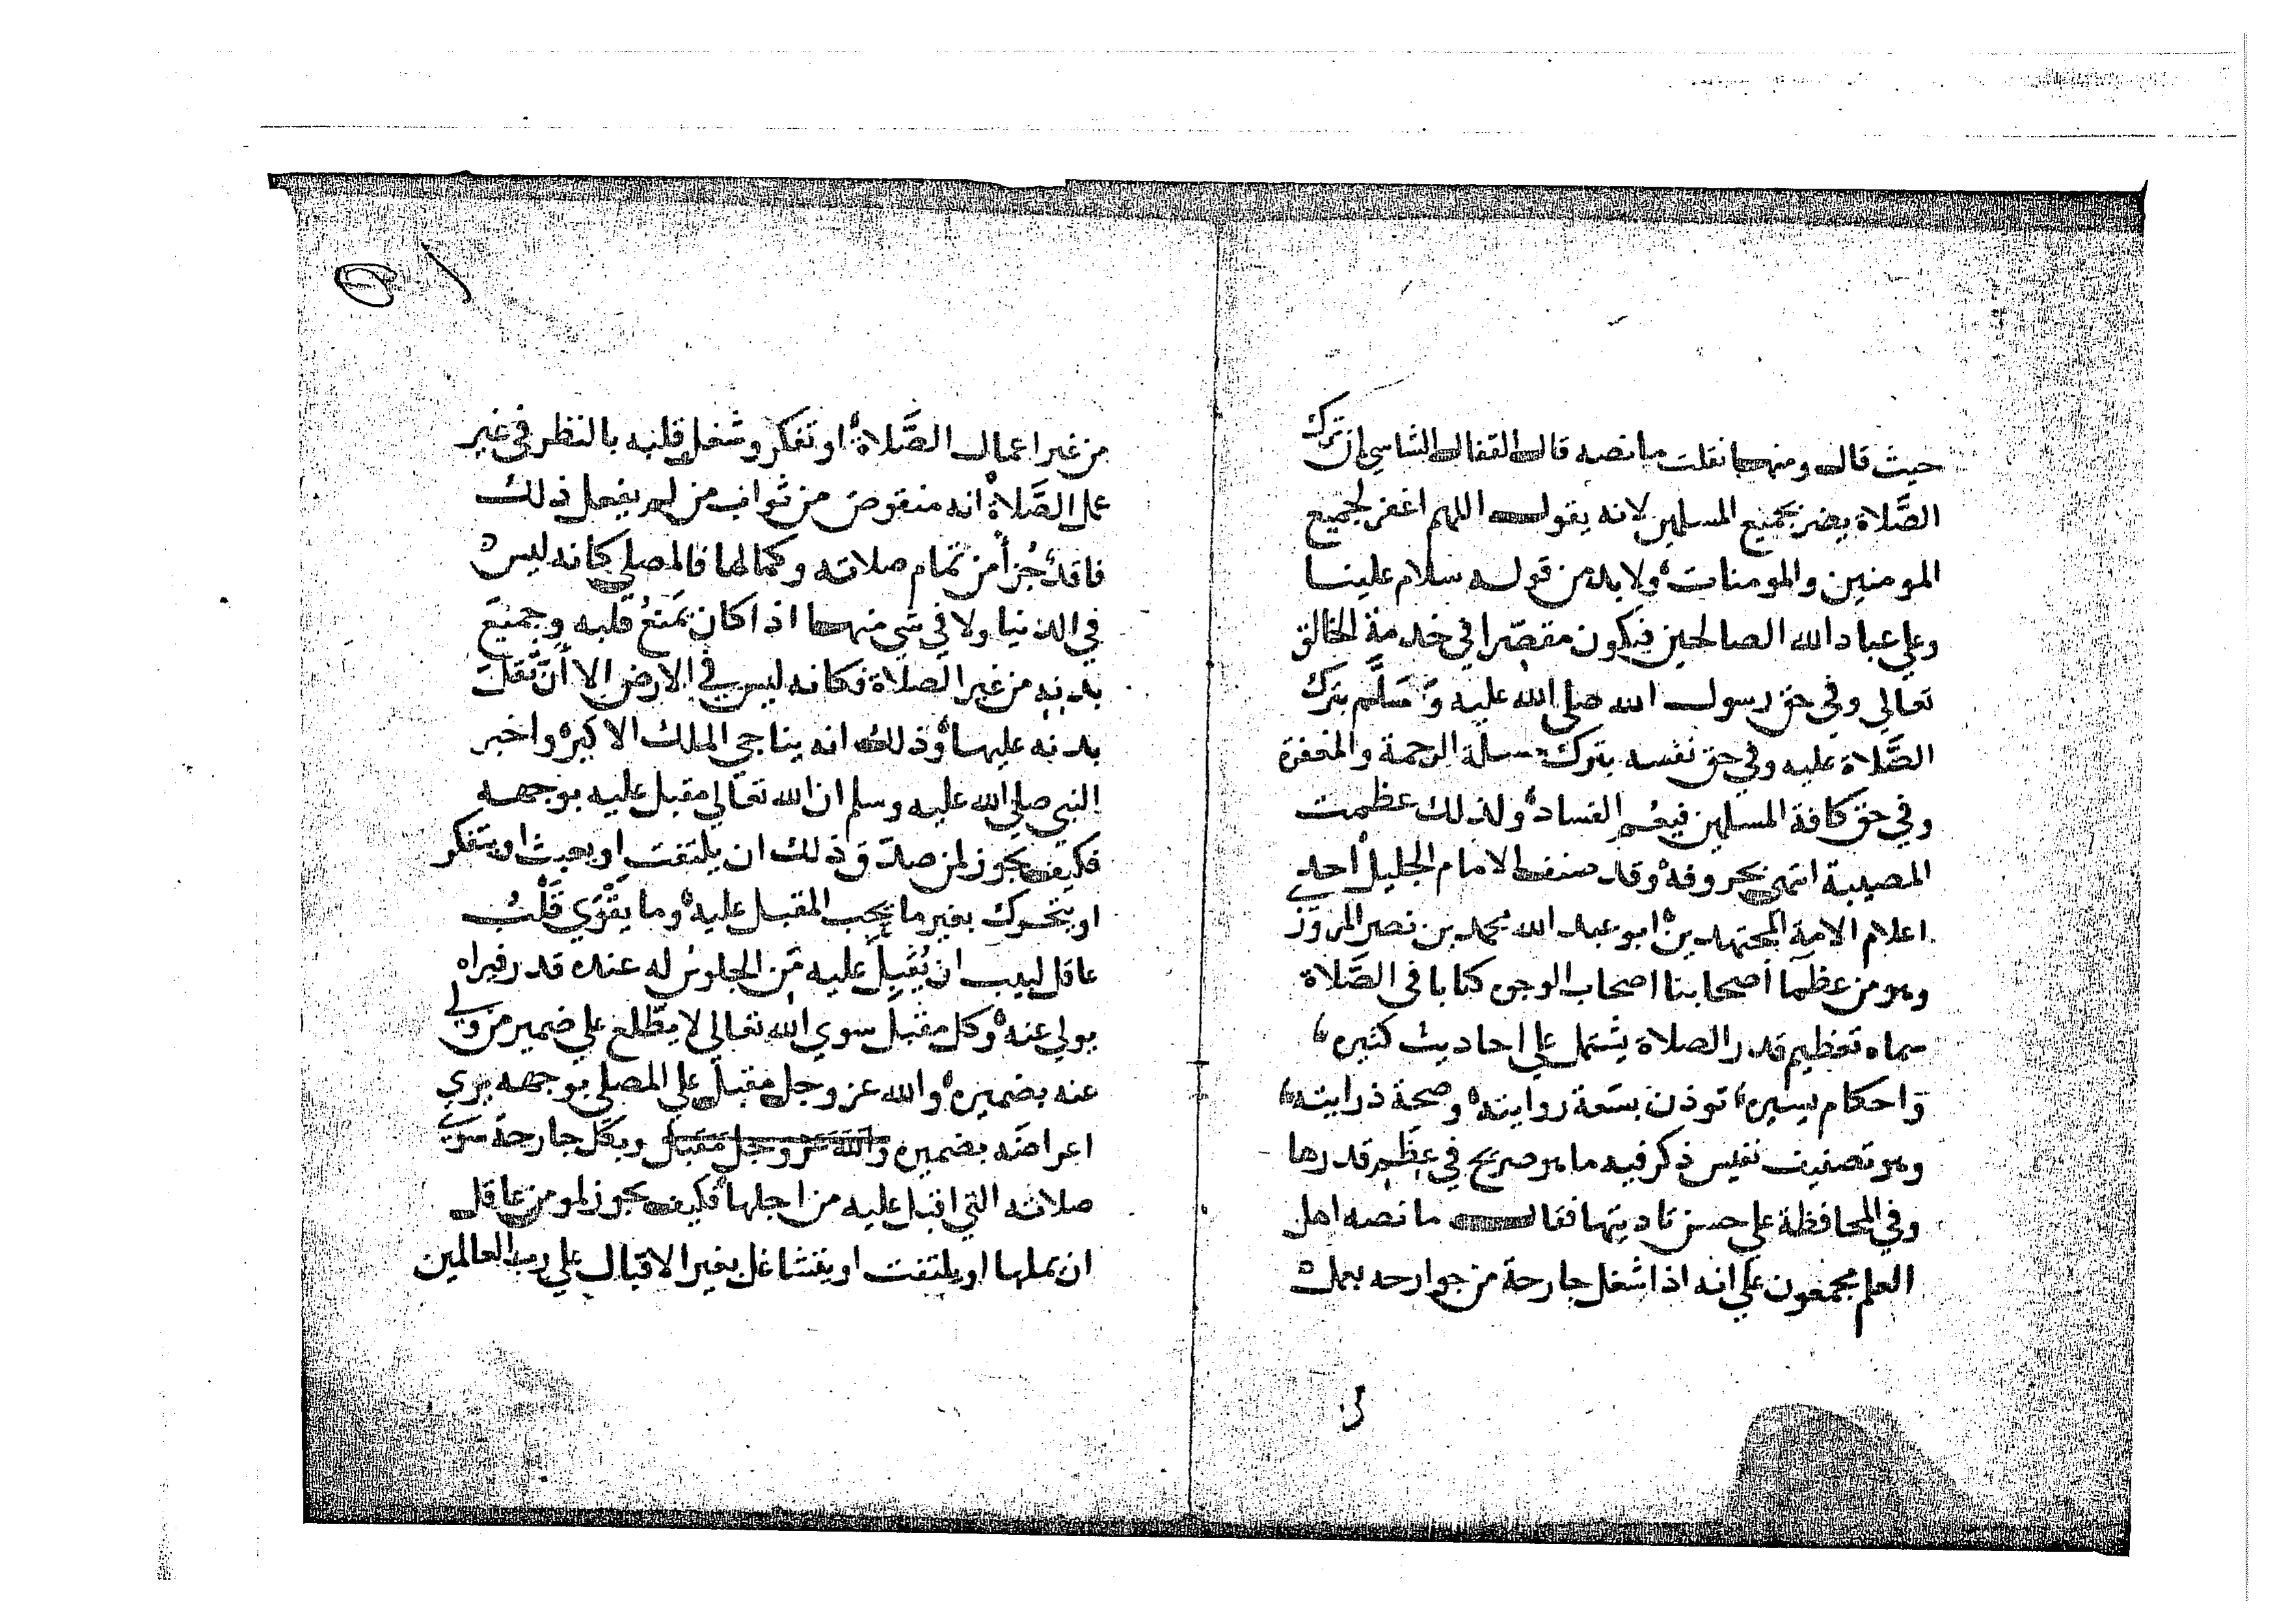 حيث قال ومنها نقلت ما نصه قال القفال الشاسي ان ترك
الصَّلاة يضر بجميع المسلمين لانه يقول اللهم اغفر لجميع
المومنين والمومنات ولابد من قوله سلام علينا
وعلي عباد الله الصالحين فيكون مقصّرا في خدمة الخالق
تعالي وفي حق رسول الله صلي الله عليه وَسَلَّم بترك
الصَّلاة عليه وفي حق نفسه بترك مسلة الرحمة والمغفرة
وفي حق كافة المسلمين فيعُم الفساد ولذلك عظمت
المصيبة انتهي بحروفه وقد صنف الامام الجليل احد
اعلام الامة المجتهدين ابو عبد الله محمد بن نصر المروزي
وهو من عظما أصحابنا اصحاب الوجوه كتابا في الصَّلاة
سماه تعظيم قدر الصلاة يشتمل علي احاديث كثيره
وَاحكام يسيره توذن بسَعة روايته وصحة ذرايته
وهو تصنيف نفيس ذكر فيه ما هو صريح في عِظَم قدرها
وفي المحافظة علي حسن تاديتها فقال ما نصه اهل
العلم مجمعون علي انه اذا شغل جارحة من جوارحه بعمل
من غير اعمال الصَّلاة او تفكر وشغل قلبه بالنظر في غير
عمل الصَّلاة انه منقوص من ثواب من لم يفعل ذلك
فاقد جُزأ من تمام صلاته وكمالها فالمصلي كانه ليس
في الدنيا ولا في شي منها اذا كان يَمنَعُ قلبه وجميعَ
بدنه من غير الصَّلاة فكانه ليس في الارض الا أنَّ ثقلَ
بدنه عليها وذلك انه يناجي الملك الاكبر واخبر
النبي صلي الله عليه وسلم ان الله تعالي مقبل عليه بوجهه
فكيف يجوز لمن صدّق ذلك ان يلتفت او يعبث او يتفكر
او يتحرك بغير ما يحب المقبل عليه وما يقْوَي قَلْبُ
عاقل لبيب ان يُقبِلَ عليه مَن الجلوس له عنده قدر فيراه
يولي عنه وكل مقبل سوي الله تعالي لا يطّلع علي ضمير من ولي
عنه بضميره والله عز وجل مقبل علي المصلي بوجهه يري
اعراضَه بضميره والله عز وجل مقبل وبكل جارحة سوي
صلاته التي اقبل عليه من اجلها فكيف يجوز لمومن عاقل
ان يملها او يلتفت او يتشاغل بغير الاقبال علي رب العالمين